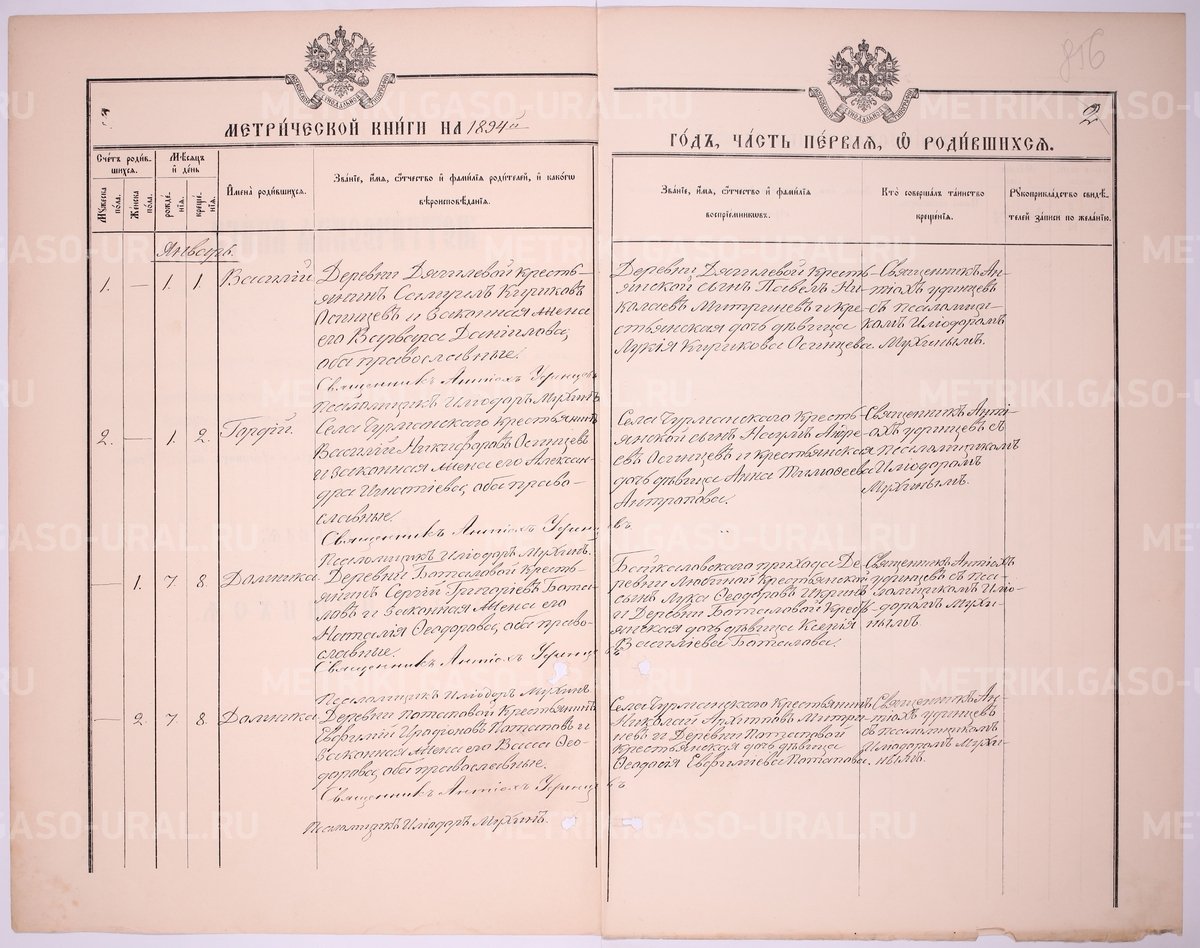 856
2
МЕТРИ́ЧЕСКОЙ КНИ́ГИ НА 1894й
ГО́ДЪ, ЧА́СТЬ ПЕ́РВАЯ, Ѡ РОДИ́ВШИХСЯ.
Счетъ роди́в-
шихся.
Мѣсяцъ
и́ день
Му́жеска
по́ла.
Же́нска
по́ла.
рожде́-
нїя.
креще́-
нїя.
И́мена роди́вшихся.
Зва́нїе, и́мя, ѻ́тчество и́ фами́лїя роди́телей, и́ како́гѡ
вѣроисповѣ́данїя.
Зва́нїе, и́мя, ѻ́тчество и́ фами́лїя
воспрїе́мниковъ.
Кто соверша́лъ та́инство
креще́нїя.
Рукоприкла́дство свидѣ́-
телей за́писи по жела́нїю.
Январь.
1. — 1. 1. Василій
Деревни Дягилевой кресть-
янинъ Самуилъ Кириковъ
Осинцевъ и законная жена
его Варвара Даніилова,
оба православные.
Священникъ Антіохъ Удинцевъ
Псаломщикъ Иліодоръ Мухинъ
Деревни Дягилевой кресть-
янской сынъ Павелъ Ни-
колаевъ Митриневъ и кре-
стьянская дочь дѣвица
Лукія Кирикова Осинцева.
Священникъ Ан-
тіохъ Удинцевъ
съ псаломщи-
комъ Иліодоромъ
Мухинымъ.
2. — 1. 2. Гордій.
Села Чурманскаго крестьянинъ
Василій Никифоровъ Осинцевъ
и законная жена его Алексан-
дра Игнатіева, оба право-
славные.
Священникъ Антіохъ Удинцевъ
Псаломщикъ Иліодоръ Мухинъ.
Села Чурманскаго кресть-
янской сынъ Наумъ Андре-
евъ Осинцевъ и крестьянская
дочь дѣвица Анна Тимофеева
Антропова.
Священникъ Анті-
охъ Удинцевъ съ
псаломщикомъ
Иліодоромъ
Мухинымъ.
— 1. 7. 8. Домника
Деревни Боталовой кресть-
янинъ Сергій Григоріевъ Бота-
ловъ и законная жена его
Наталія Ѳеодорова, оба право-
славные.
Священникъ Антіохъ Удинцевъ
Псаломщикъ Иліодоръ Мухинъ
прихода Де-
ревни крестьянскій
сынъ Лука Ѳеодоровъ
и Деревни Боталовой крес-
янская дочь дѣвица Ксенія
Василіева Боталова.
Священникъ Антіохъ
Удинцевъ съ пса-
ломщикомъ Иліо-
доромъ Мухи-
нымъ.
— 2. 7. 8. Домника
Деревни Потаповой крестьянинъ
Евфимій Потаповъ и
законная жена его Васса Ѳео-
дорова, оба православные.
Священникъ Антіохъ Удинцевъ
Псаломщикъ Иліодоръ Мухинъ.
Села Чурманскаго крестьянинъ
Николай Архиповъ Митри-
невъ и Деревни Потаповой
крестьянская дочь дѣвица
Ѳеодосія Евфиміева Потапова.
Священникъ Ан-
тіохъ Удинцевъ
съ псаломщикомъ
Иліодоромъ Мухи-
нымъ.
METRIKI.GASO-URAL.RU